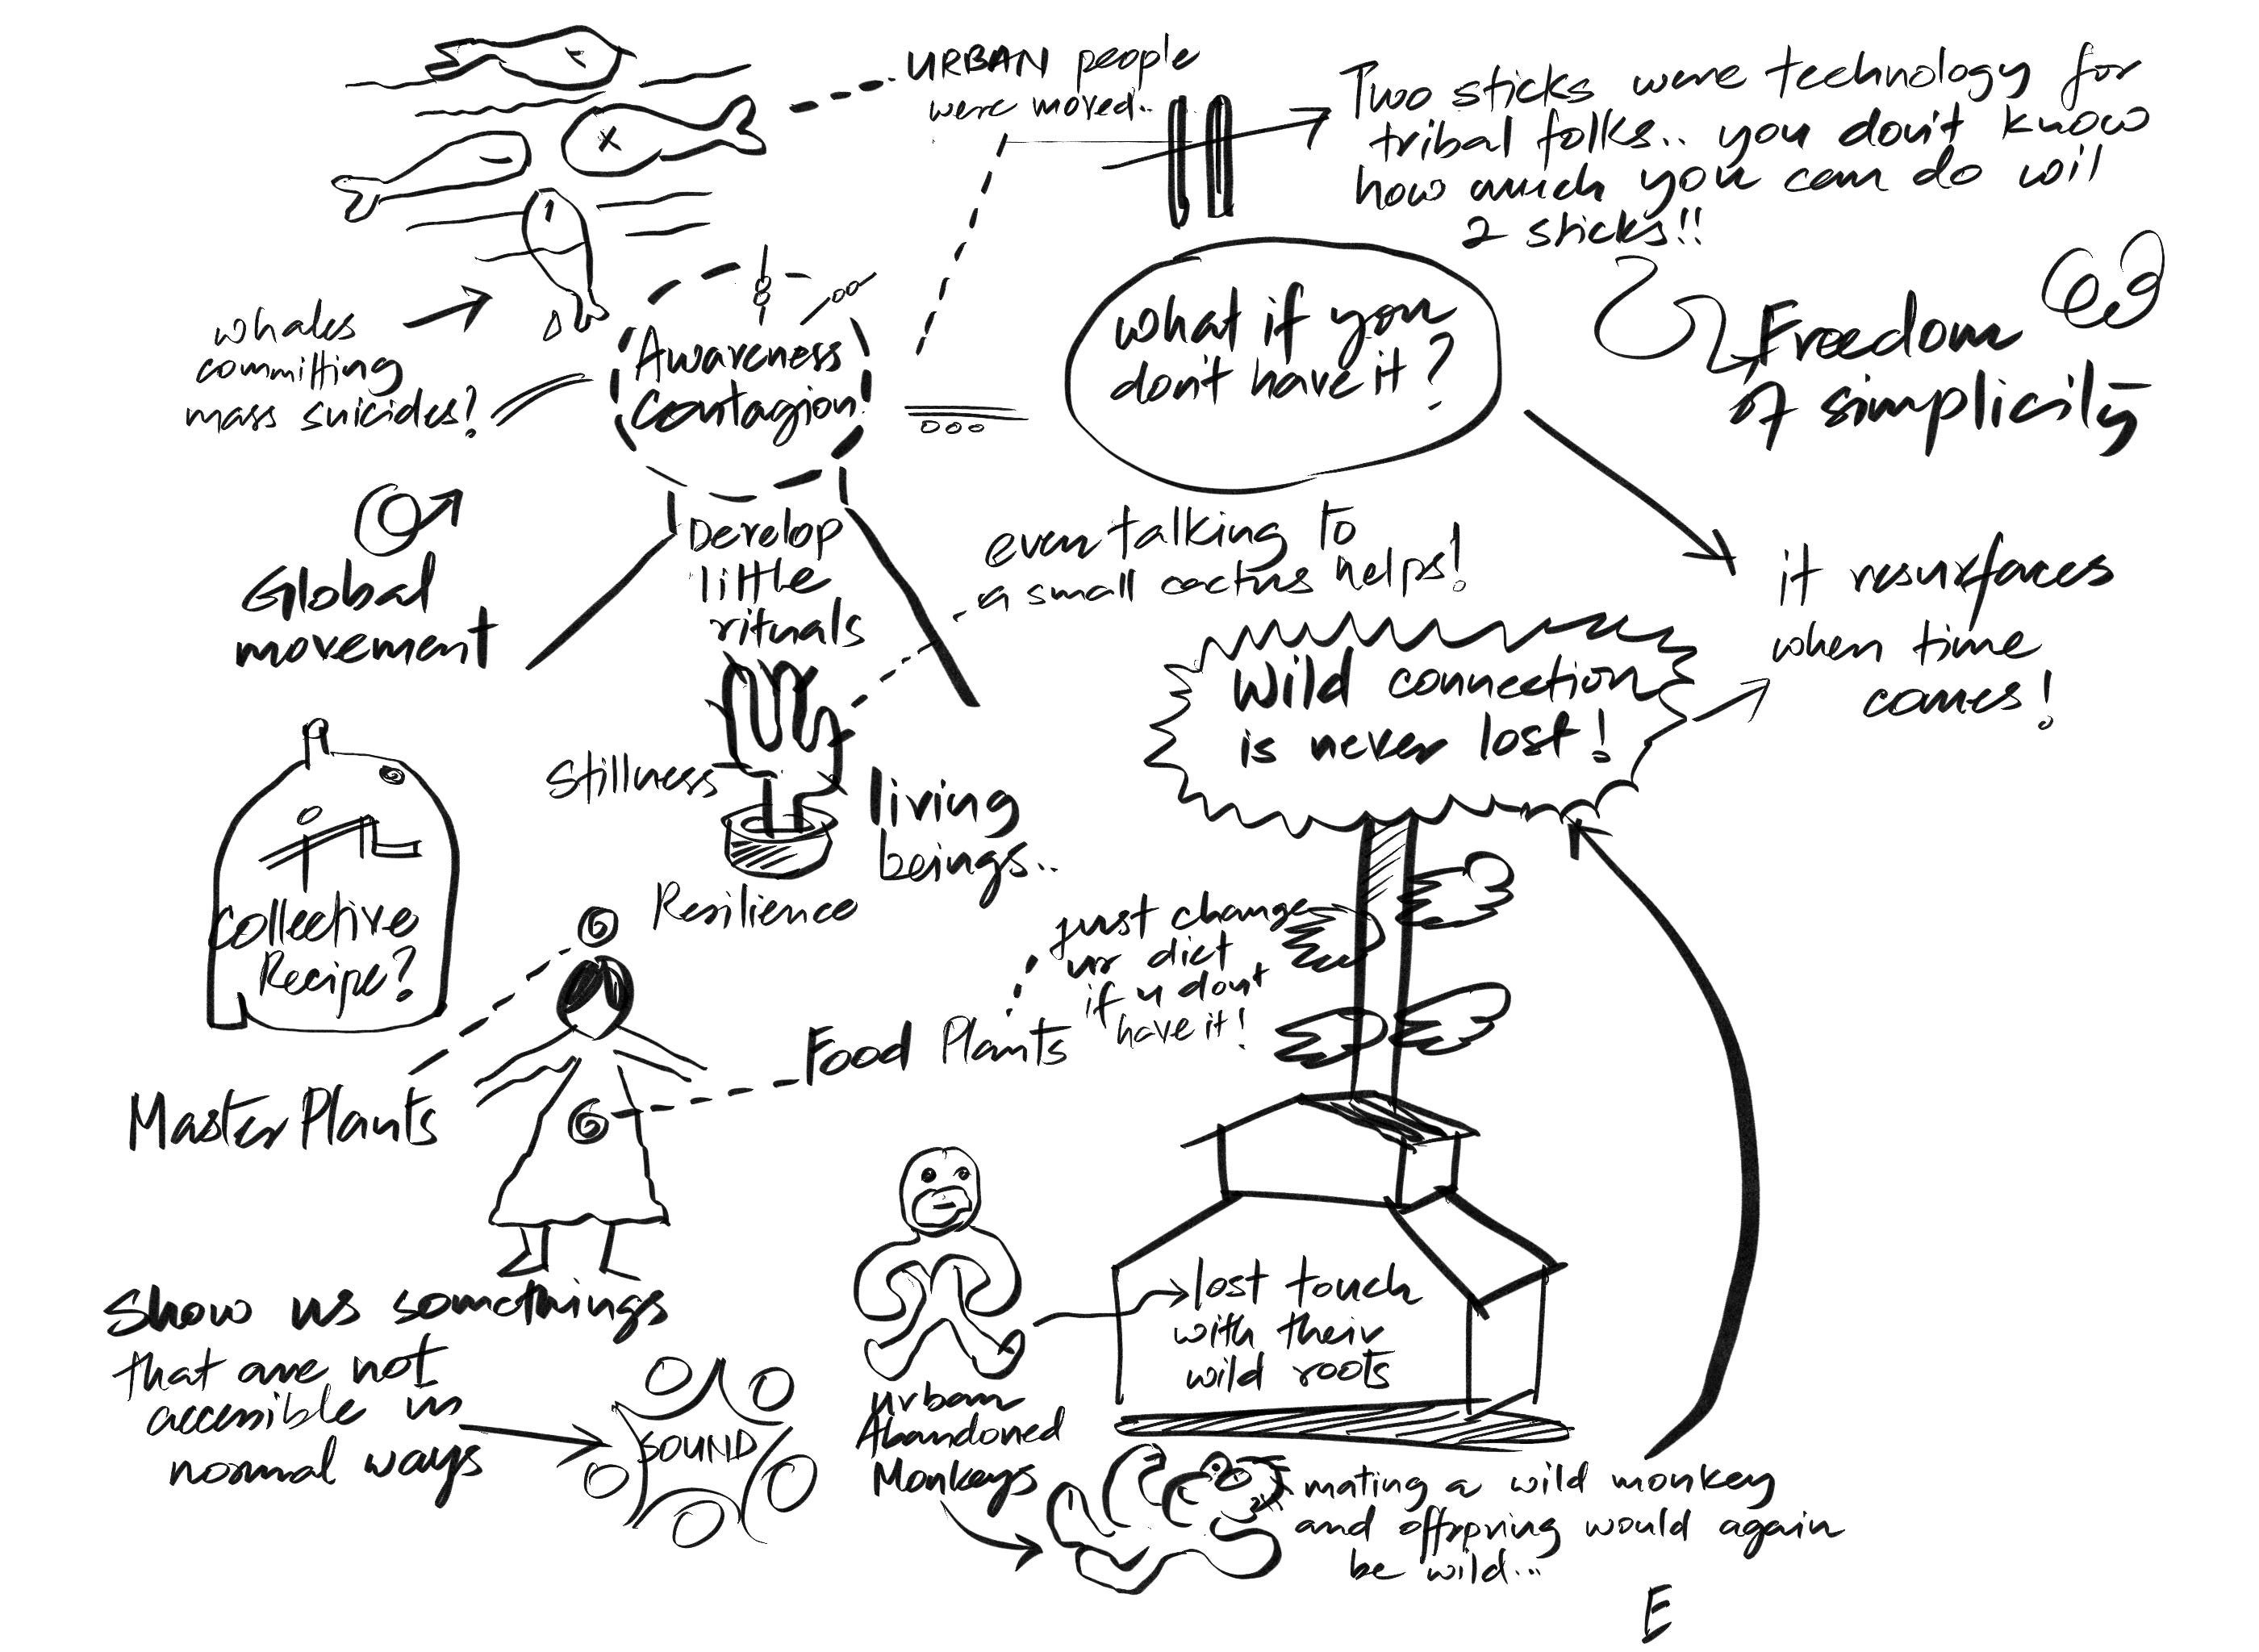 URBAN people
were moved..
Two sticks were technology for
tribal folks.. you don't know
how much you can do wil
2 sticks!!
Freedom
of simplicity
whales
committing
mass suicides?
Awareness
contagion!
what if you
don't have it?
Global
movement
Develop
little
rituals
even talking to
a small cactus helps!
it resurfaces
when time
comes!
Wild connection
is never lost!
Stillness
living
beings..
Resilience
Collective
Recipe?
just change
ur diet
if u dont
have it!
Food Plants
Master Plants
Show us somethings
that are not
accessible in
normal ways
SOUND
urban
Abandoned
Monkeys
lost touch
with their
wild roots
mating a wild monkey
and offspring would again
be wild...
E